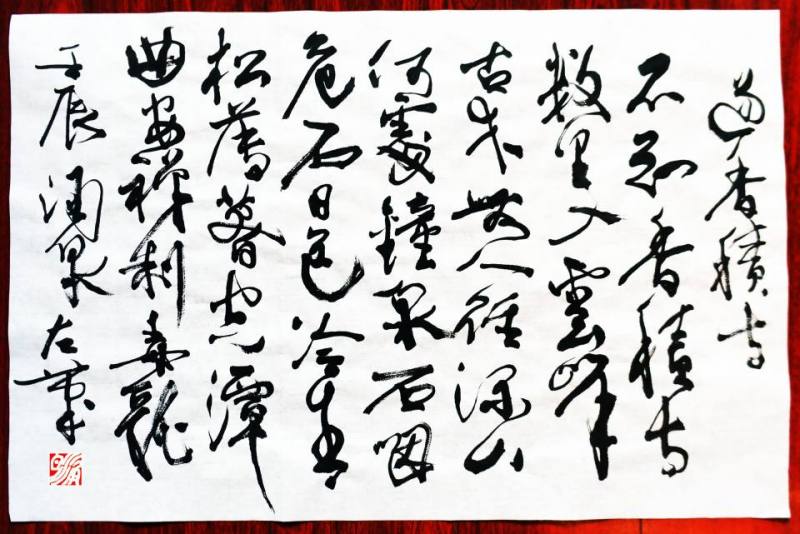 過香積寺
不知香積寺
数里入雲峰
古木無人徑深山
何處鐘泉石咽
危石日色冷青
松薄暮空潭
曲安禪制毒龍
壬辰潤泉左筆